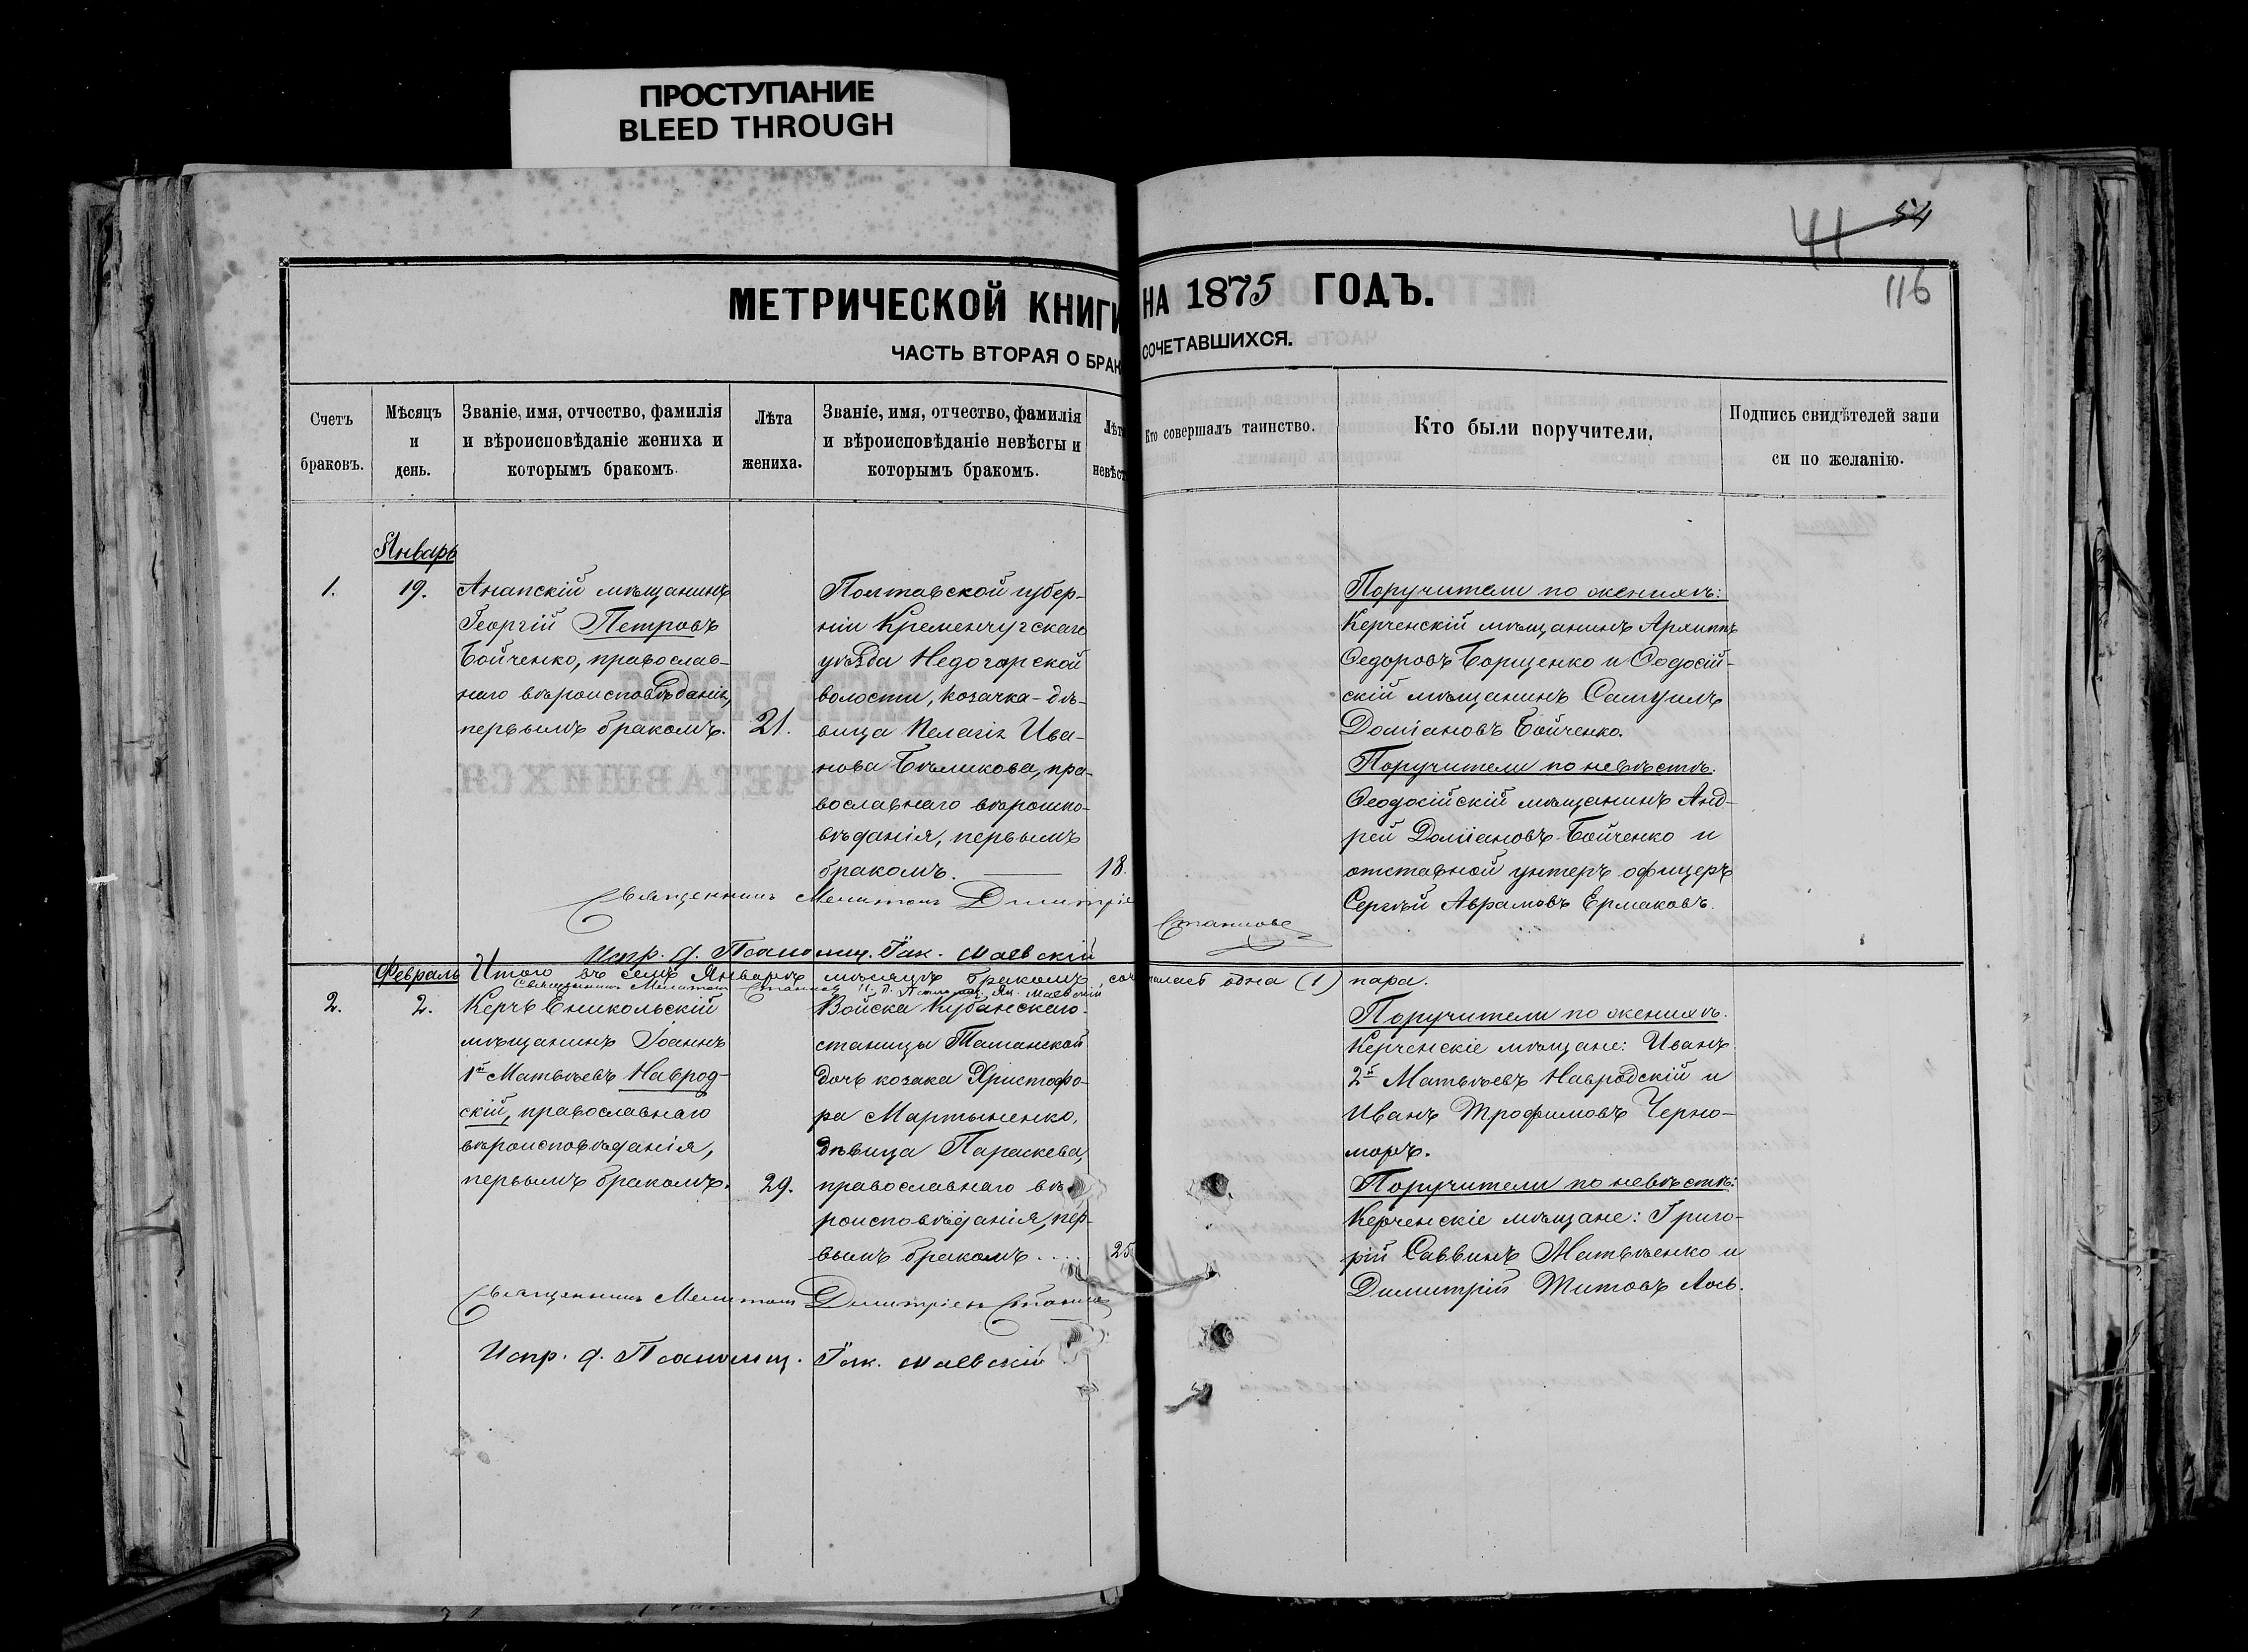 ПРОСТУПАНИЕ
BLEED THROUGH
41 54
116
МЕТРИЧЕСКОЙ КНИГИ НА 1875 ГОДЪ.
ЧАСТЬ ВТОРАЯ О БРАК СОЧЕТАВШИХСЯ.
Счетъ
браковъ.
Мѣсяцъ
и
день.
Званіе, имя, отчество, фамилія
и вѣроисповѣданіе жениха и
которымъ бракомъ.
Лѣта
жениха.
Званіе, имя, отчество, фамилія
и вѣроисповѣданіе невѣсты и
которымъ бракомъ.
Лѣта
невѣст
Кто совершалъ таинство.
Кто были поручители.
Подпись свидѣтелей запи
си по желанію.
Январь
1.
19.
Анапскій мѣщанинъ
Георгій Петровъ
Бойченко, православ-
наго вѣроисповѣданія,
первымъ бракомъ.
21.
Полтавской губер-
ніи Кременчугскаго
уѣзда Недогарской
волости, козачка-дѣ-
вица Пелагія Ива-
нова Бѣликова, пра-
вославнаго вѣроиспо-
вѣданія, первымъ
бракомъ.
18.
Поручители по женихѣ:
Керченскій мѣщанинъ Архиппъ
Ѳедоровъ Борщенко и Ѳеодосій-
скій мѣщанинъ Самуилъ
Доміановъ Бойченко.
Поручители по невѣстѣ:
Ѳеодосійскій мѣщанинъ Анд-
рей Доміановъ Бойченко и
отставной унтеръ офицеръ
Сергѣй Аврамовъ Ермаковъ.
Священникъ Мелитонъ Димитріе
Станковъ
Испр. д. Псаломщ. Іак. Маевскій
Февраль
Итого въ семъ Январѣ мѣсяцѣ бракомъ соч талась одна (1) пара.
Священникъ Мелитонъ Станковъ И. д. Псаломщ. Як. Маевскій
2.
2.
Керчь Еникольскій
мѣщанинъ Іоаннъ
1й Матвѣевъ Наврод-
скій, православнаго
вѣроисповѣданія,
первымъ бракомъ.
29.
Войска Кубанскаго
станицы Таманской
дочь козака Христофо-
ра Мартыненко,
дѣвица Параскева,
православнаго вѣ-
роисповѣданія, пер-
вымъ бракомъ....
25
Поручители по женихѣ.
Керченскіе мѣщане: Иванъ
2й Матвѣевъ Навродскій и
Иванъ Трофимовъ Черно-
моръ.
Поручители по невѣстѣ:
Керченскіе мѣщане: Григо-
рій Саввинъ Матвѣенко и
Димитрій Титовъ Лось.
Священникъ Мелитонъ Димитріевъ Станков
Испр. д. Псаломщ. Іак. Маевскій